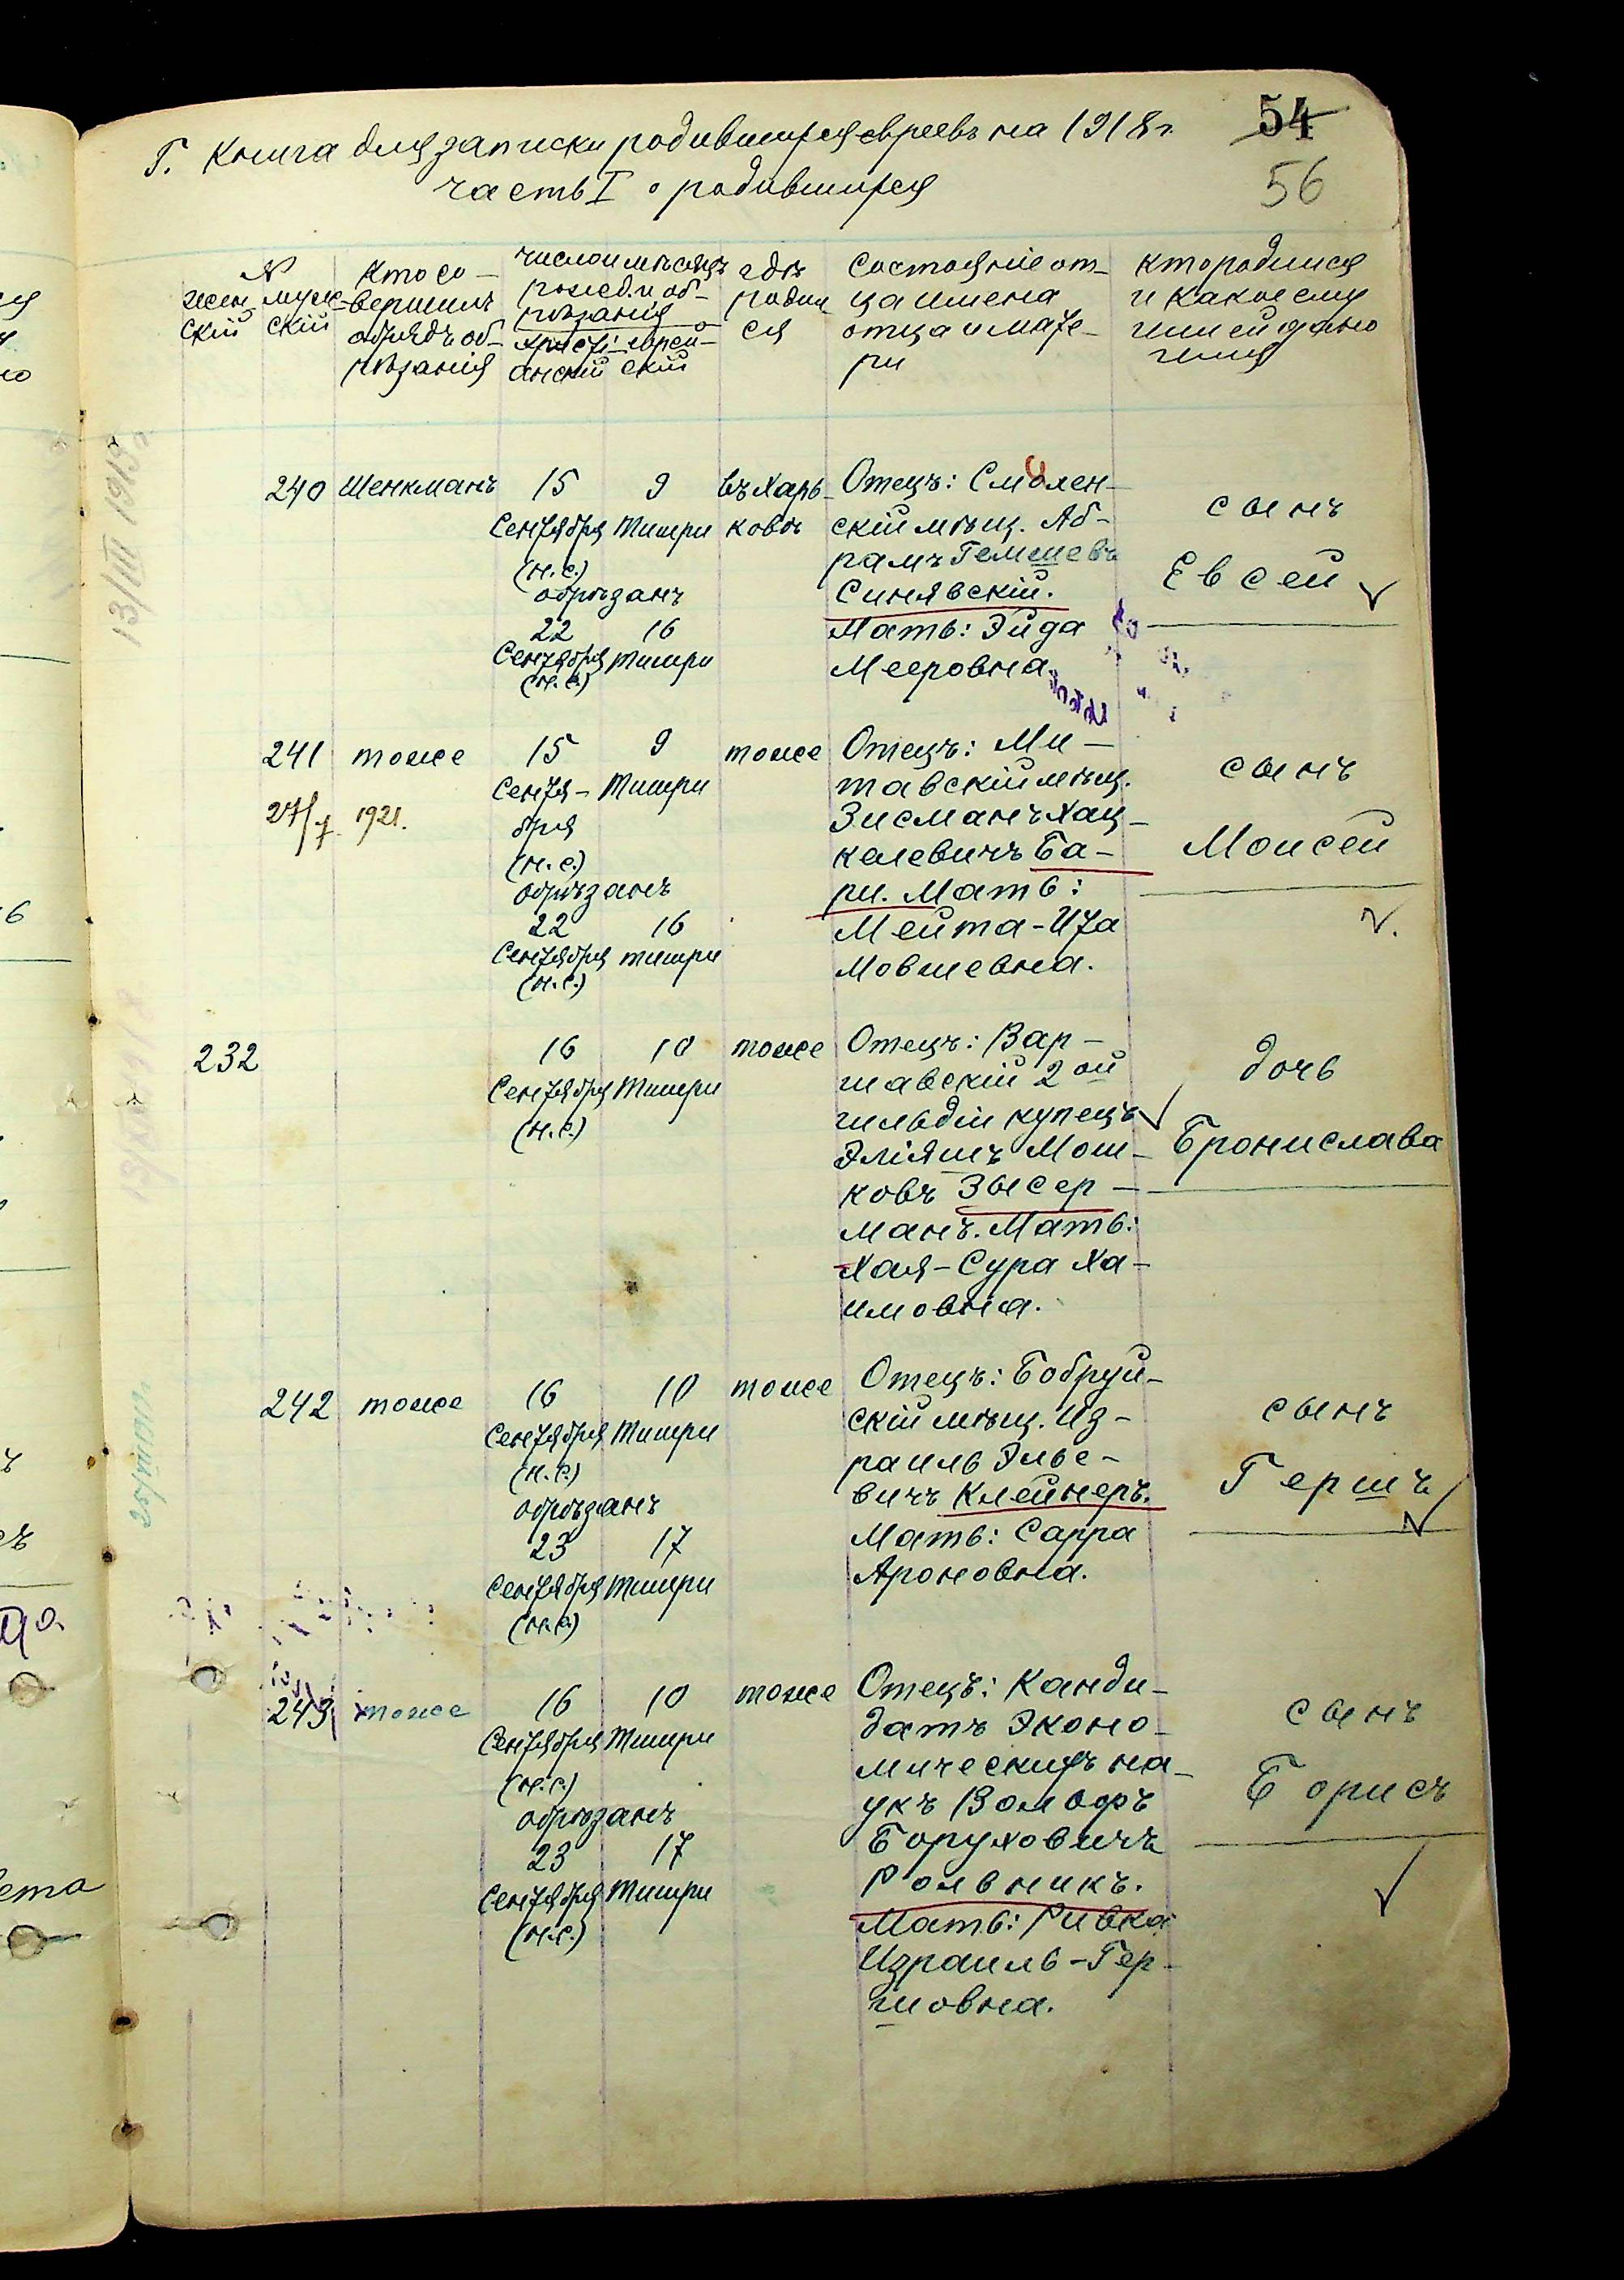 54
Г. Книга для записки родившихся евреевъ на 1918 г.
56
часть I о родившихся
№
женскій
мужскій
Кто со-
вершилъ
обрядъ об-
рѣзанія
число и мѣсяцъ
рожд. и об-
рѣзанія
христі-
анскій
еврей-
скій
гдѣ
родил
ся
Состояніе от-
ца имена
отца и мате-
ри
кто родился
и какое ему
или ей дано
имя
240 Шенкманъ 15 9 въ Харь-
Сентября Тишри ковѣ
(н.с.)
обрѣзанъ
22 16
Сентября тишри
(н.с.)
Отецъ: Смолен-
скій мѣщ. Аб-
рамъ Гемшевъ
Синявскій.
Мать: Эйда
Мееровна.
сынъ
Евсей
241 тоже 15 9 тоже
Сентя- Тишри
бря
(н.с.)
27/7. 1921.
обрѣзанъ
22 16
Сентября тишри
(н.с.)
Отецъ: Ми-
тавскій мѣщ.
Зисманъ Хац-
келевичъ Ба-
ри. Мать:
Мейта-Ита
Мовшевна.
сынъ
Моисей
232 16 10 тоже
Сентября Тишри
(н.с.)
Отецъ: Вар-
шавскій 2ой
гильдіи купецъ
Эліяшъ Мош-
ковъ Зысер-
манъ. Мать:
Хая-Сура Ха-
имовна.
дочь
Бронислава
242 тоже 16 10 тоже
Сентября Тишри
(н.с.)
обрѣзанъ
23 17
Сентября Тишри
(н.с.)
Отецъ: Бобруй-
скій мѣщ. Из-
раиль Элье-
вичъ Клейнеръ.
Мать: Сарра
Ароновна.
сынъ
Гершъ
243 тоже 16 10 тоже
Сентября Тишри
(н.с.)
обрѣзанъ
23 17
Сентября Тишри
(н.с.)
Отецъ: Канди-
датъ Эконо-
мическихъ на-
укъ Вольфъ
Боруховичъ
Рольникъ.
Мать: Ривка
Израиль-Гер-
шовна.
сынъ
Борисъ